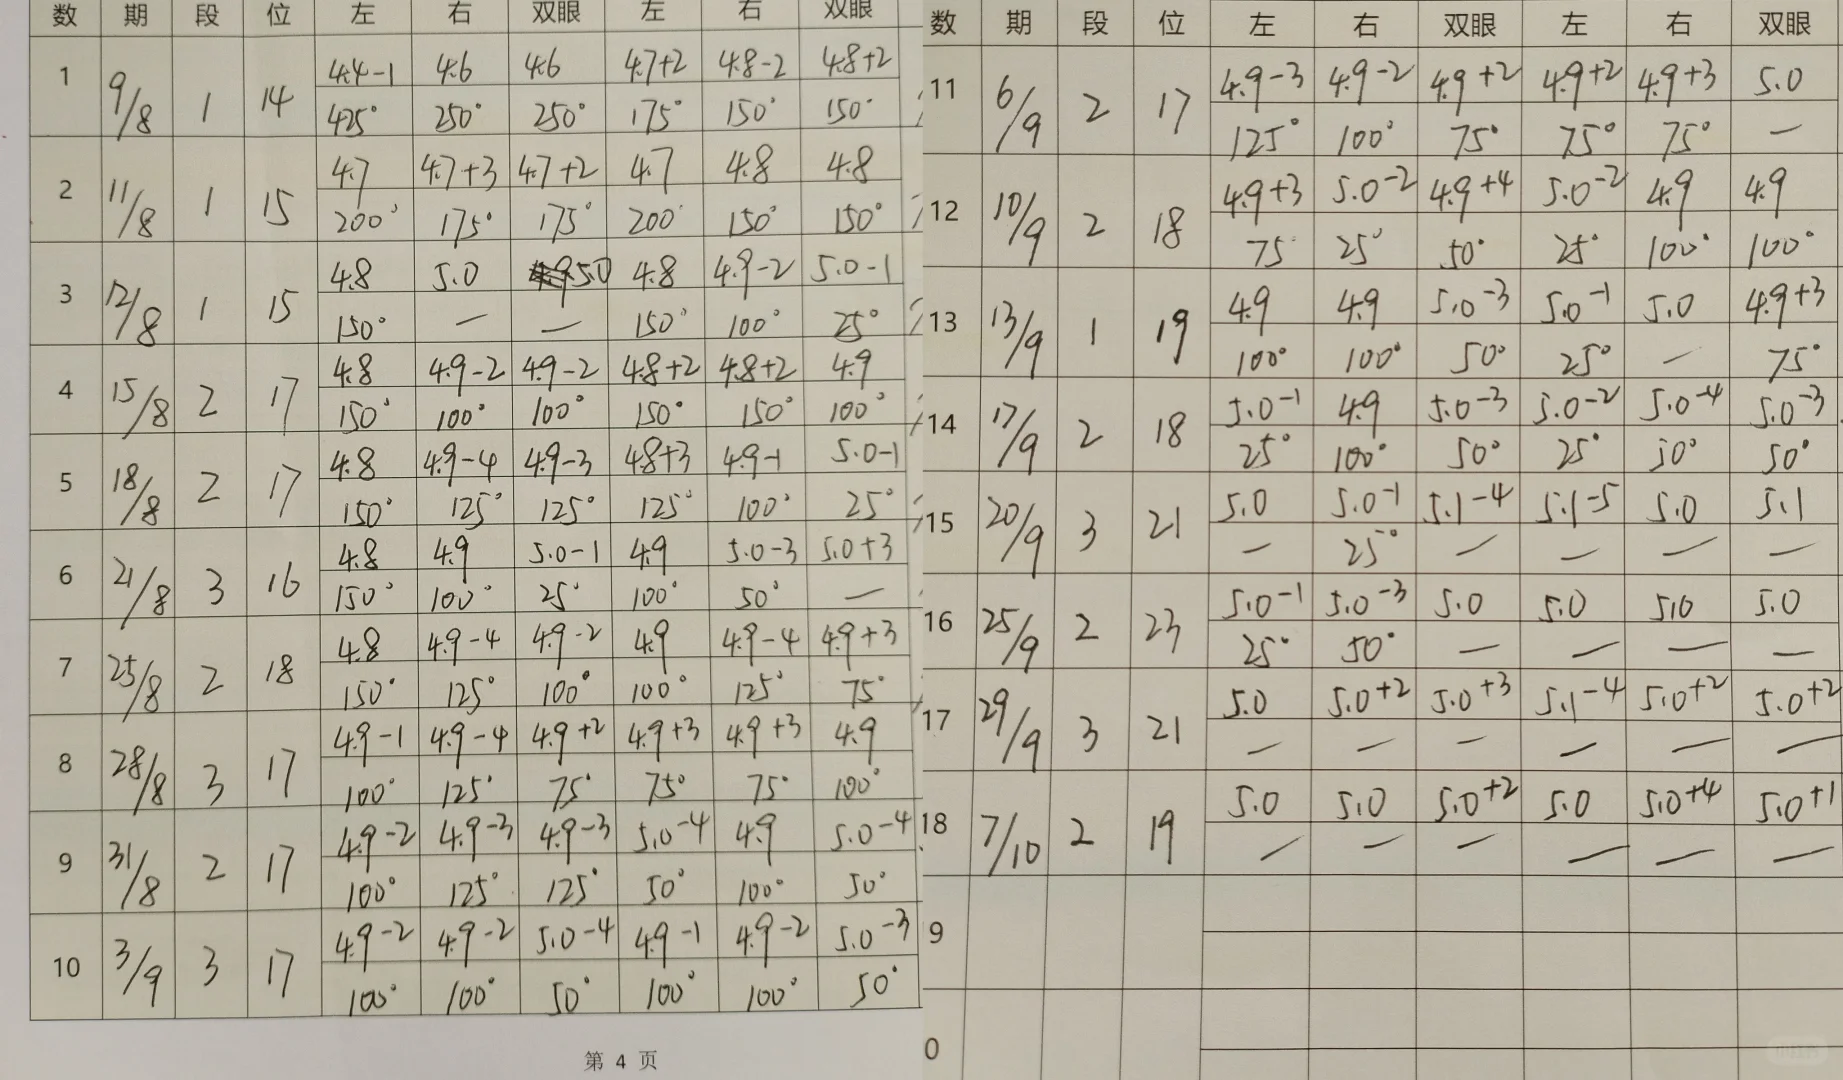 数 期 段 位 左 右 双眼 左 右 双眼
1 9/8 1 14 4.4-1 4.6 4.6 4.7+2 4.8-2 4.8+2
425° 250° 250° 175° 150° 150°
2 11/8 1 15 4.7 4.7+3 4.7+2 4.7 4.8 4.8
200° 175° 175° 200° 150° 150°
3 12/8 1 15 4.8 5.0 5.0 4.8 4.9-2 5.0-1
150° — — 150° 100° 25°
4 15/8 2 17 4.8 4.9-2 4.9-2 4.8+2 4.8+2 4.9
150° 100° 100° 150° 150° 100°
5 18/8 2 17 4.8 4.9-4 4.9-3 4.8+3 4.9-1 5.0-1
150° 125° 125° 125° 100° 25°
6 21/8 3 16 4.8 4.9 5.0-1 4.9 5.0-3 5.0+3
150° 100° 25° 100° 50° —
7 25/8 2 18 4.8 4.9-4 4.9-2 4.9 4.9-4 4.9+3
150° 125° 100° 100° 125° 75°
8 28/8 3 17 4.9-1 4.9-4 4.9+2 4.9+3 4.9+3 4.9
100° 125° 75° 75° 75° 100°
9 31/8 2 17 4.9-2 4.9-3 4.9-3 5.0-4 4.9 5.0-4
100° 125° 125° 50° 100° 50°
10 3/9 3 17 4.9-2 4.9-2 5.0-4 4.9-1 4.9-2 5.0-3
100° 100° 50° 100° 100° 50°
第 4 页
数 期 段 位 左 右 双眼 左 右 双眼
11 6/9 2 17 4.9-3 4.9-2 4.9+2 4.9+2 4.9+3 5.0
125° 100° 75° 75° 75° —
12 10/9 2 18 4.9+3 5.0-2 4.9+4 5.0-2 4.9 4.9
75° 25° 50° 25° 100° 100°
13 13/9 1 19 4.9 4.9 5.0-3 5.0-1 5.0 4.9+3
100° 100° 50° 25° — 75°
14 17/9 2 18 5.0-1 4.9 5.0-3 5.0-2 5.0-4 5.0-3
25° 100° 50° 25° 50° 50°
15 20/9 3 21 5.0 5.0-1 5.1-4 5.1-5 5.0 5.1
— 25° — — — —
16 25/9 2 23 5.0-1 5.0-3 5.0 5.0 5.0 5.0
25° 50° — — — —
17 29/9 3 21 5.0 5.0+2 5.0+3 5.1-4 5.0+2 5.0+2
— — — — — —
18 7/10 2 19 5.0 5.0 5.0+2 5.0 5.0+4 5.0+1
— — — — — —
9
0